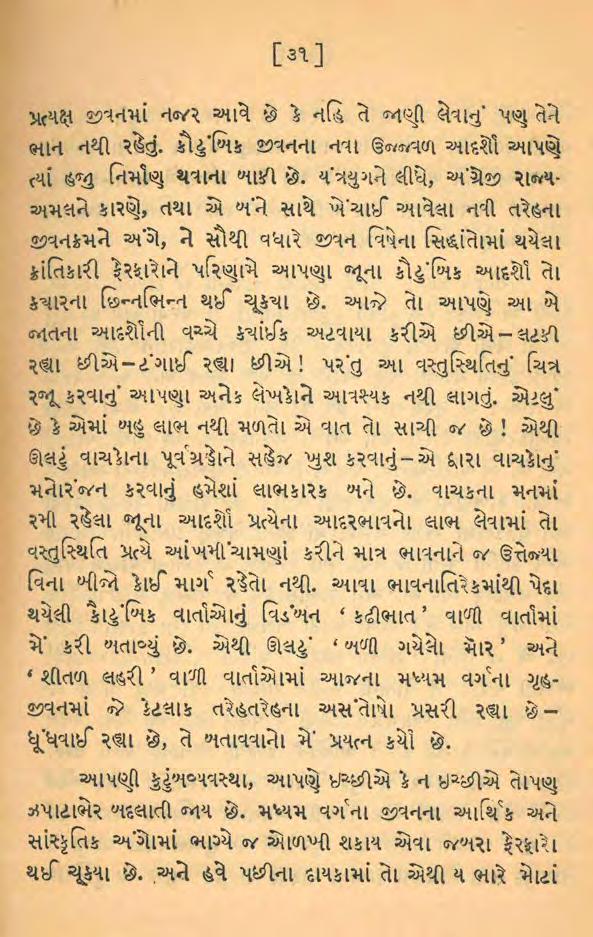 [ ૩૧ ]
પ્રત્યક્ષ જીવનમાં નજર આવે છે કે નહિ તે જાણી લેવાનું પણ તેને
ભાન નથી રહેતું. કૌટુંબિક જીવનના નવા ઉજ્જવળ આદર્શો આપણે
ત્યાં હજુ નિર્માણ થવાના બાકી છે. યંત્રયુગને લીધે, અંગ્રેજી રાજ્ય-
અમલને કારણે, તથા એ બંને સાથે ખેંચાઈ આવેલા નવી તરેહના
જીવનક્રમને અંગે, ને સૌથી વધારે જીવન વિષેના સિદ્ધાંતોમાં થયેલા
ક્રાંતિકારી ફેરફારોને પરિણામે આપણા જૂના કૌટુંબિક આદર્શો તો
કયારના છિન્નભિન્ન થઈ ચૂકયા છે. આજે તો આપણે આ બે
જાતના આદર્શોની વચ્ચે કયાંઈક અટવાયા કરીએ છીએ – લટકી
રહ્યા છીએ – ટંગાઈ રહ્યા છીએ ! પરંતુ આ વસ્તુસ્થિતિનું ચિત્ર
રજૂ કરવાનું આપણા અનેક લેખકોને આવશ્યક નથી લાગતું. એટલું
છે કે એમાં બહુ લાભ નથી મળતો એ વાત તો સાચી જ છે ! એથી
ઊલટું વાચકોના પૂર્વગ્રહોને સહેજ ખુશ કરવાનું – એ દ્વારા વાચકોનું
મનોરંજન કરવાનું હમેશાં લાભકારક બને છે. વાચકના મનમાં
રમી રહેલા જૂના આદર્શો પ્રત્યેના આદરભાવનો લાભ લેવામાં તો
વસ્તુસ્થિતિ પ્રત્યે આંખમીંચામણાં કરીને માત્ર ભાવનાને જ ઉત્તેજ્યા
વિના બીજો કોઈ માર્ગ રહેતો નથી. આવા ભાવનાતિરેકમાંથી પેદા
થયેલી કૌટુંબિક વાર્તાઓનું વિડંબન ‘ કઢીભાત ’ વાળી વાર્તામાં
મેં કરી બતાવ્યું છે. એથી ઊલટું ‘ બળી ગયેલો મૉર ’ અને
‘ શીતળ લહરી ’ વાળી વાર્તાઓમાં આજના મધ્યમ વર્ગના ગૃહ-
જીવનમાં જે કેટલાક તરેહતરેહના અસંતોષો પ્રસરી રહ્યા છે –
ધૂંધવાઈ રહ્યા છે, તે બતાવવાનો મેં પ્રયત્ન કર્યો છે.
આપણી કુટુંબવ્યવસ્થા, આપણે ઇચ્છીએ કે ન ઇચ્છીએ તોપણ
ઝપાટાભેર બદલાતી જાય છે. મધ્યમ વર્ગના જીવનના આર્થિક અને
સાંસ્કૃતિક અંગોમાં ભાગ્યે જ ઓળખી શકાય એવા જબરા ફેરફારો
થઈ ચૂકયા છે. અને હવે પછીના દાયકામાં તો એથી ય ભારે મોટાં